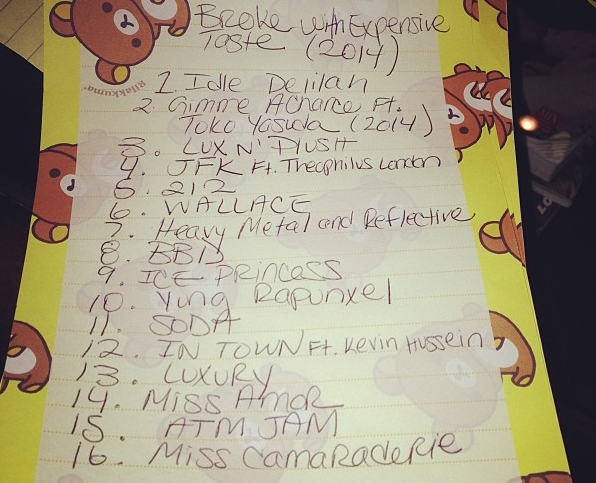 Broke with Expensive
Taste (2014)
Rilakkuma
1. Idle Delilah
2. Gimme A Chance Ft.
Toko Yasuda (2014)
3. LUX N' Plush
4. JFK Ft. Theophilus London
5. 212
6. WALLACE
7. Heavy Metal and Reflective
8. BBD
9. ICE PRINCESS
10. Yung Rapunxel
11. SODA
12. IN TOWN Ft. Kevin Hussein
13. LUXURY
14. Miss Amor
15. ATM JAM
16. Miss Camaraderie